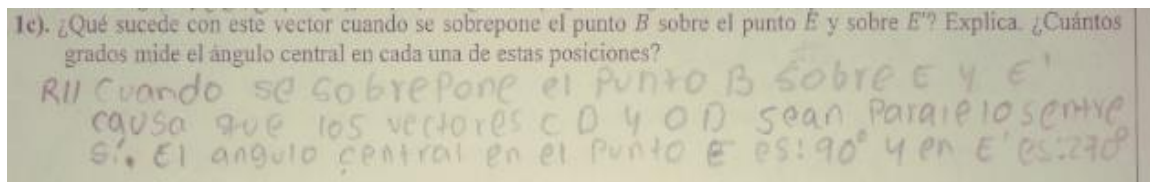 1c). ¿Qué sucede con este vector cuando se sobrepone el punto B sobre el punto E y sobre E'? Explica. ¿Cuántos
grados mide el ángulo central en cada una de estas posiciones?
R// Cuando se sobrepone el punto B sobre E y E'
causa que los vectores C D y O D sean paralelos entre
sí. El angulo central en el punto E es: 90° y en E' es: 270°